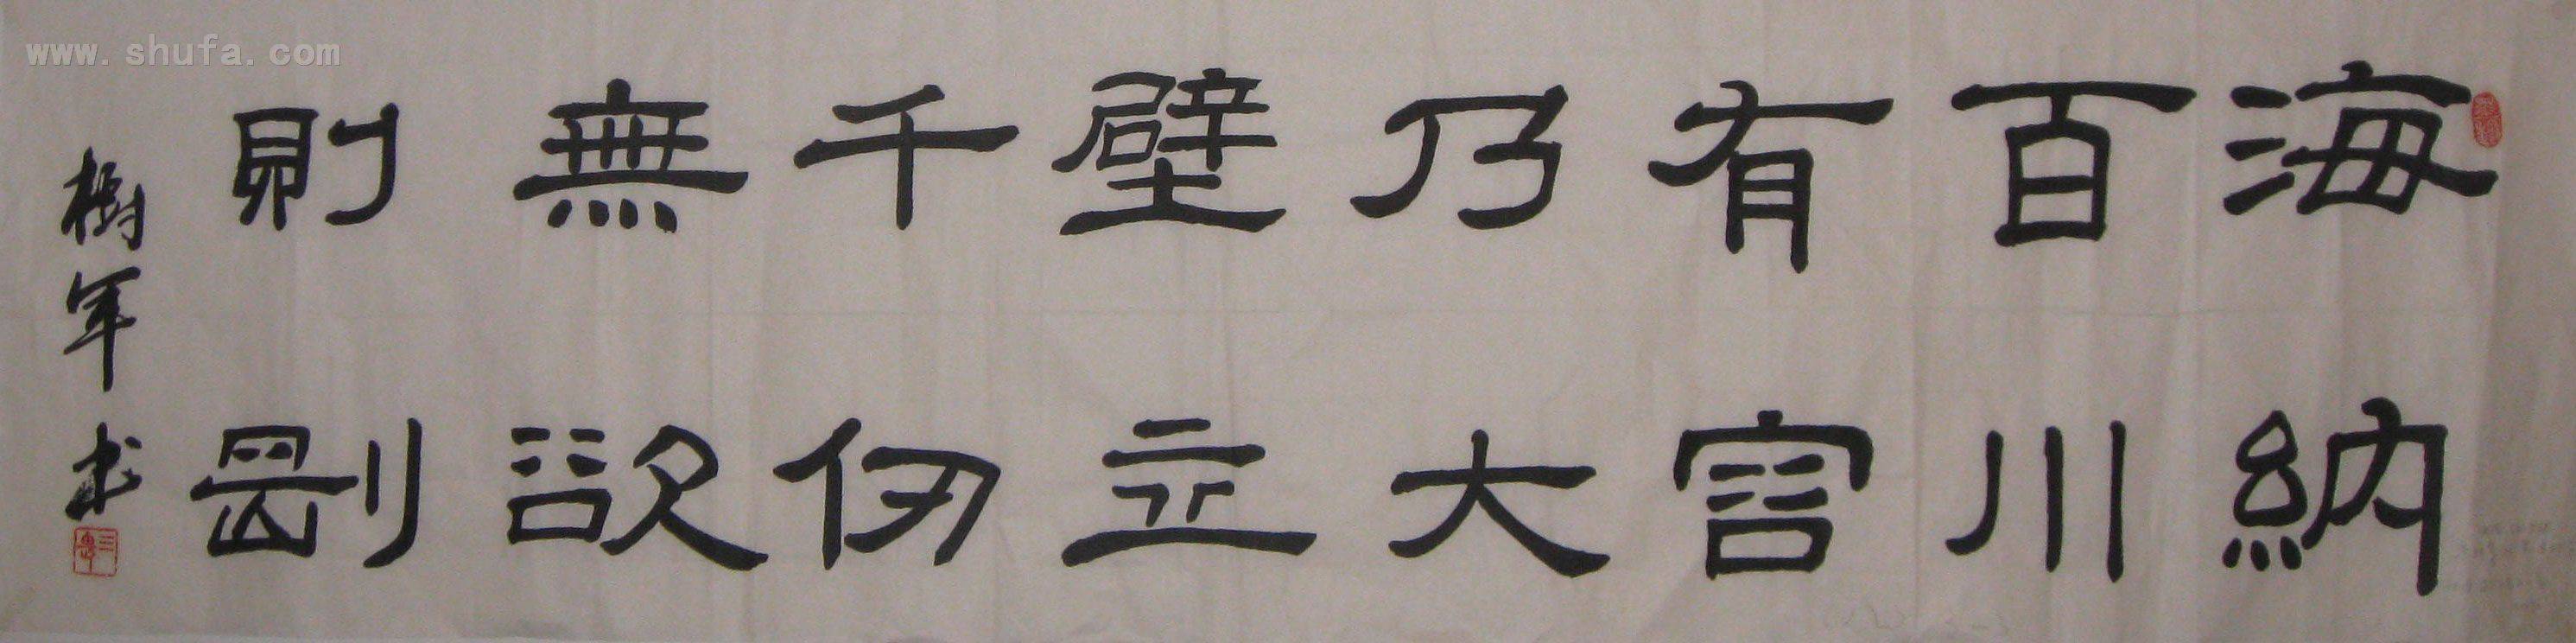 海納
百川
有容
乃大
壁立
千仞
無欲
則剛
樹軍书
www.shufa.com